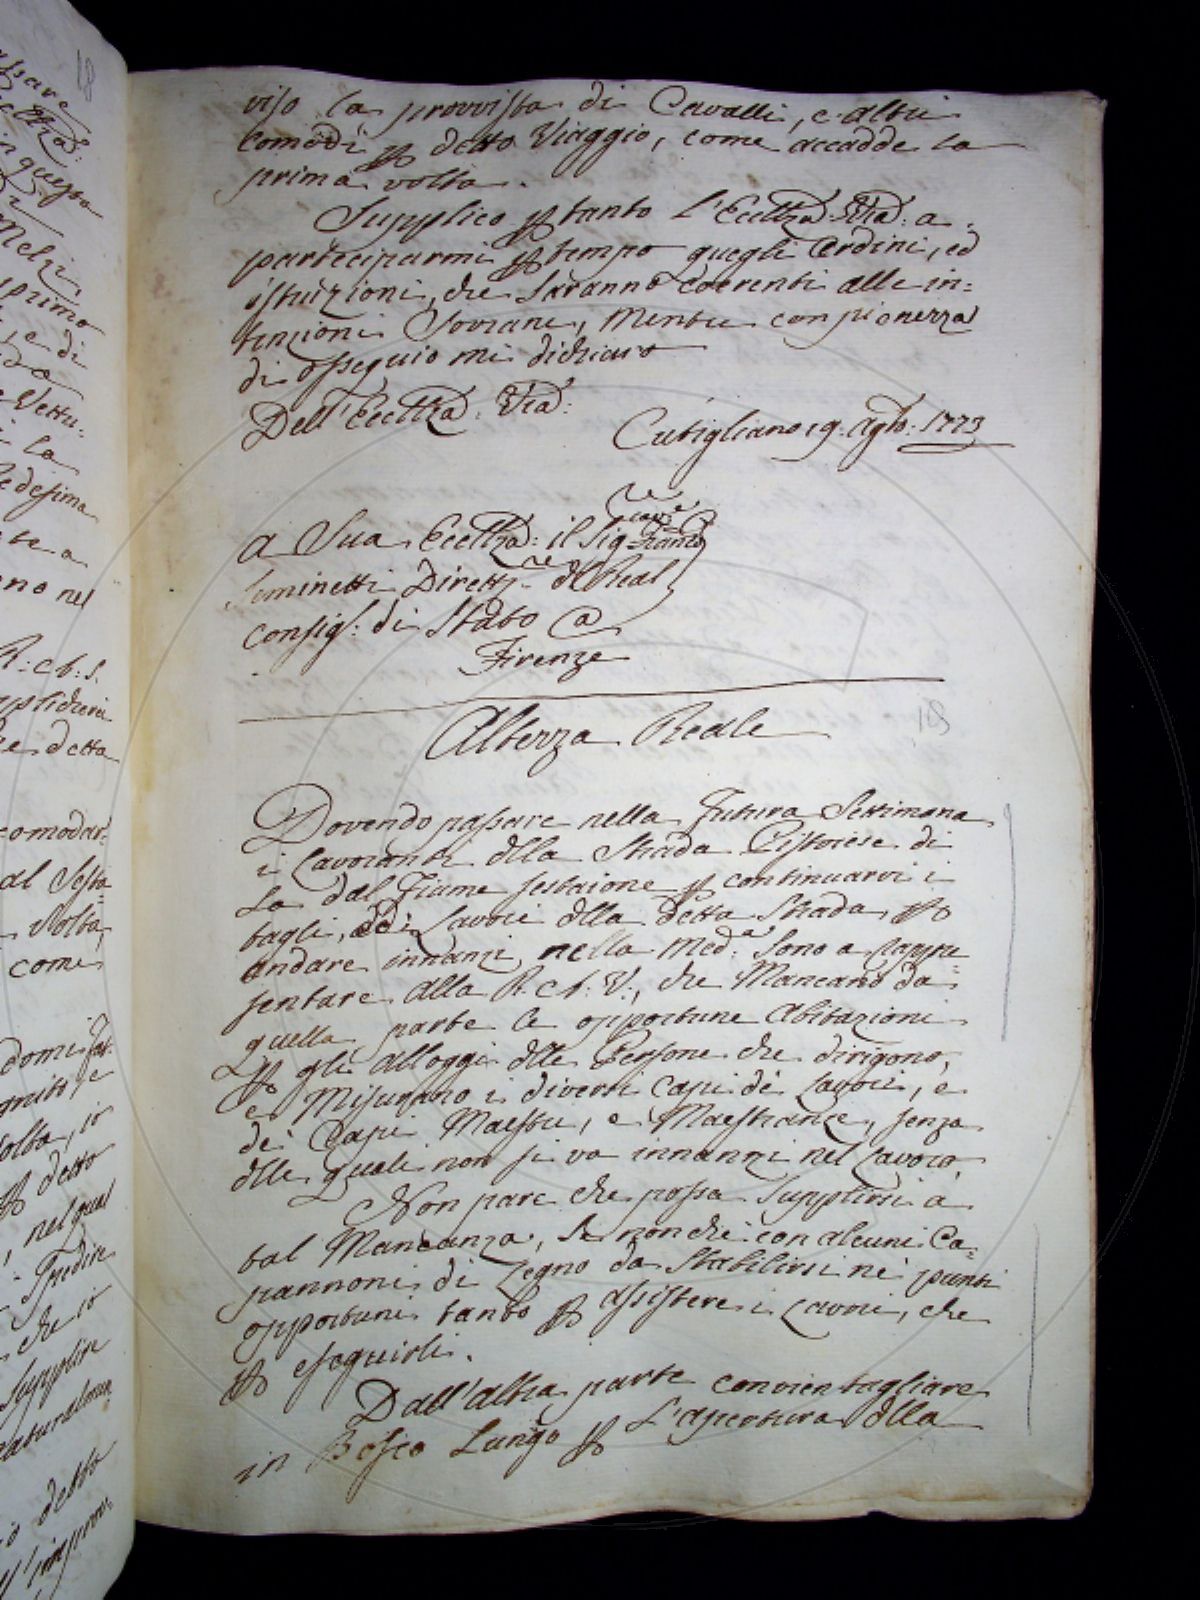 viso la provvista di Cavalli, e altri
Comodi p detto Viaggio, come accadde la
prima volta.
Supplico p tanto l'Ecellza Vra: a
parteciparmi p tempo quegli Ordini, ed
istruzioni, che saranno coerenti alle in:
tenzioni Sovrane, mentre con pienezza
di ossequio mi dichiaro
Dell'Ecellza: Vra:
Cutigliano 19. Agto: 1773
A Sua Ecellza: il Sigre Cavre Franco
Seminetti Direttre del Real
Consig: di Stato @
Firenze
Altezza Reale
18
Dovendo passare nella futura Settimana
i Lavoranti dlla Strada Pistoiese di
La dal Fiume Sestaione p continuarvi i
tagli, ed i Lavori dlla detta Strada p
andare innanzi nella Meda: sono a rappre
sentare alla R: A: V:, che Mancano da
quella parte le opportune Abitazioni
p gli alloggi dlle Persone che dirigono,
e Misurano i diversi Capi de Lavori, e
de Capi Maestri, e Maestranze, senza
dlle quali non si va innanzi nel Lavoro.
Non pare che possa Supplirsi a
tal Mancanza, se non che con alcuni Ca:
pannoni di Legno da Stabilirsi ne punti
opportuni tanto p assistere i Lavori, che
p eseguirli.
Dall'altra parte convien tagliare
in Bosco Lungo p L'apertura dlla